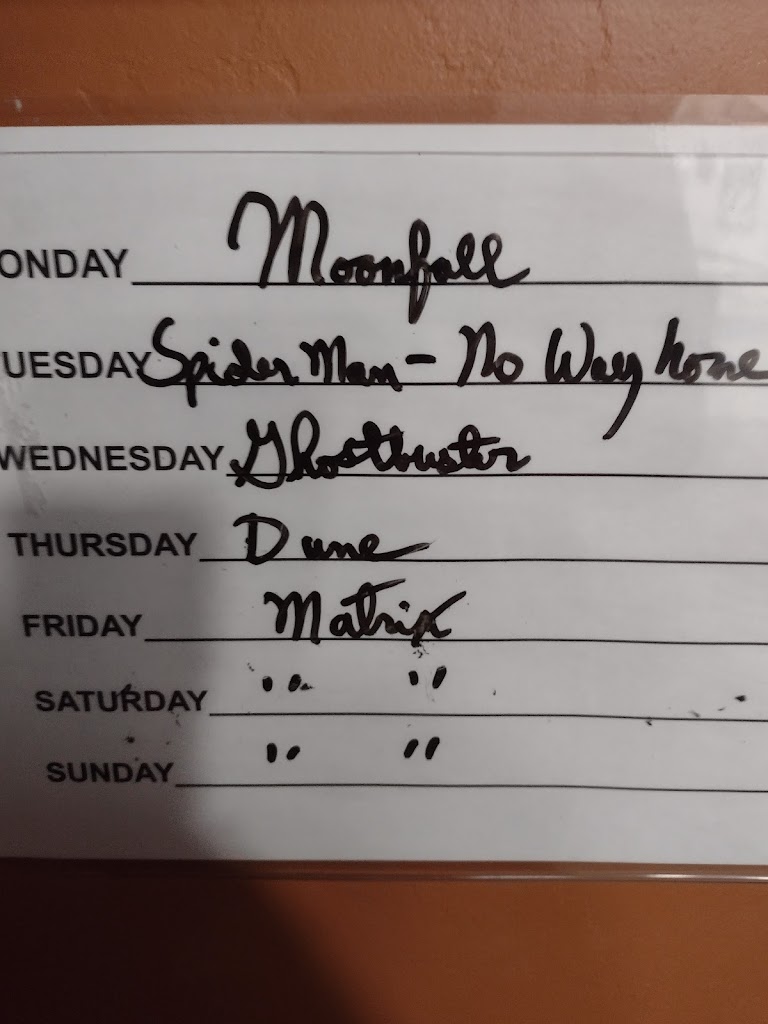 ONDAY Moonfall
UESDAY Spider Man - No Way home
WEDNESDAY Ghostbuster
THURSDAY Dune
FRIDAY Matrix
SATURDAY " "
SUNDAY " "